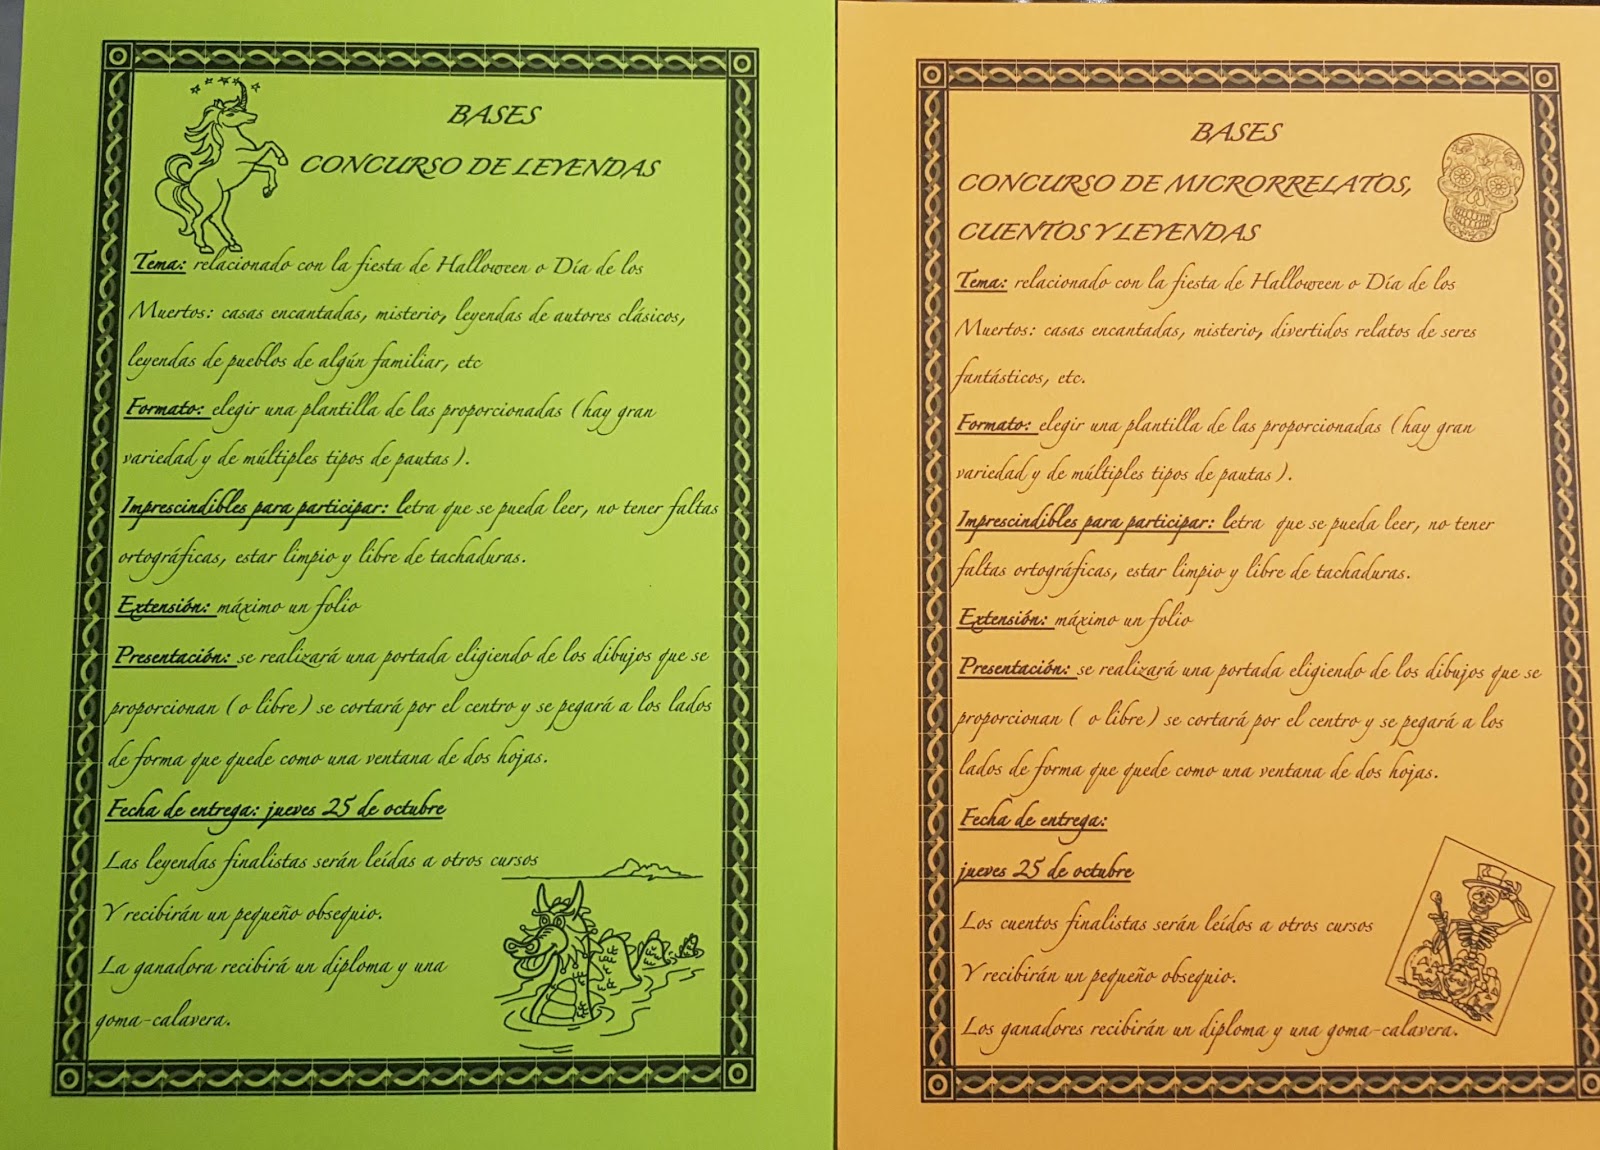 BASES
CONCURSO DE LEYENDAS
Tema: relacionado con la fiesta de Halloween o Día de los
Muertos: casas encantadas, misterio, leyendas de autores clásicos,
leyendas de pueblos de algún familiar, etc
Formato: elegir una plantilla de las proporcionadas (hay gran
variedad y de múltiples tipos de pautas).
Imprescindibles para participar: letra que se pueda leer, no tener faltas
ortográficas, estar limpio y libre de tachaduras.
Extensión: máximo un folio
Presentación: se realizará una portada eligiendo de los dibujos que se
proporcionan (o libre) se cortará por el centro y se pegará a los lados
de forma que quede como una ventana de dos hojas.
Fecha de entrega: jueves 25 de octubre
Las leyendas finalistas serán leídas a otros cursos
Y recibirán un pequeño obsequio.
La ganadora recibirá un diploma y una
goma-calavera.
BASES
CONCURSO DE MICRORRELATOS,
CUENTOS Y LEYENDAS
Tema: relacionado con la fiesta de Halloween o Día de los
Muertos: casas encantadas, misterio, divertidos relatos de seres
fantásticos, etc.
Formato: elegir una plantilla de las proporcionadas (hay gran
variedad y de múltiples tipos de pautas).
Imprescindibles para participar: letra que se pueda leer, no tener
faltas ortográficas, estar limpio y libre de tachaduras.
Extensión: máximo un folio
Presentación: se realizará una portada eligiendo de los dibujos que se
proporcionan ( o libre) se cortará por el centro y se pegará a los
lados de forma que quede como una ventana de dos hojas.
Fecha de entrega:
jueves 25 de octubre
Los cuentos finalistas serán leídos a otros cursos
Y recibirán un pequeño obsequio.
Los ganadores recibirán un diploma y una goma-calavera.